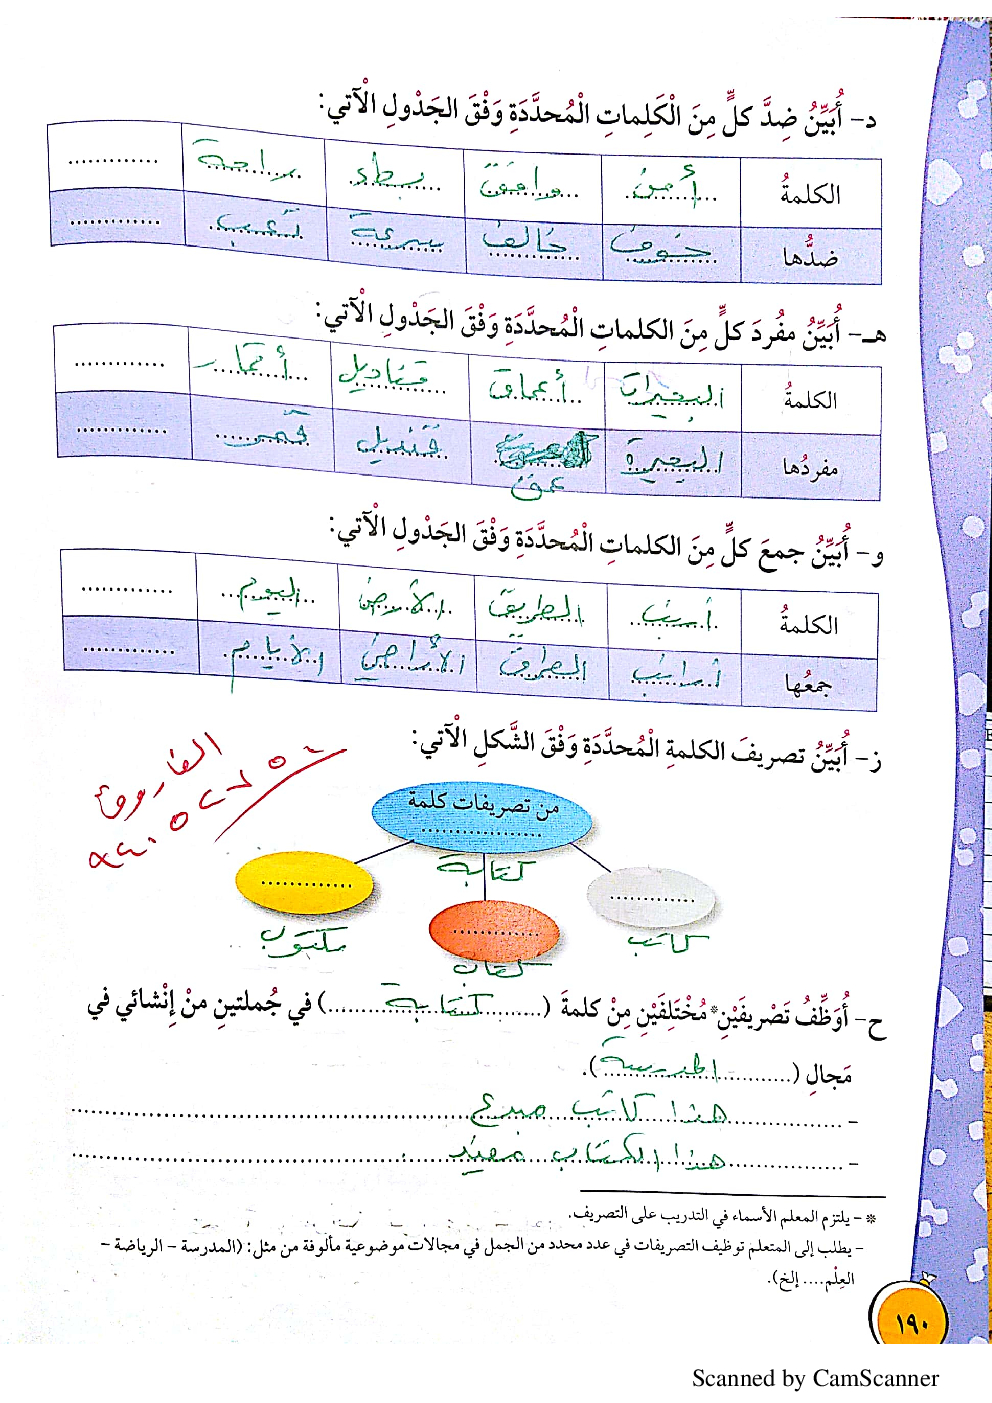 د- أُبَيِّنُ ضِدَّ كلٍّ مِنَ الْكَلِماتِ الْمُحدَّدَةِ وَفْقَ الجَدْولِ الْآتي:
الكلمةُ أمن وافق بطء راحة ............
ضدُّها خوف خالف سرعة تعب ............
هـ- أُبَيِّنُ مفُردَ كلٍّ مِنَ الكلماتِ الْمُحدَّدَةِ وَفْقَ الجَدْولِ الْآتي:
الكلمةُ البحيرات أعماق قناديل أقمار ............
مفردُها البحيرة عمق قنديل قمر ............
و- أُبَيِّنُ جمعَ كلٍّ مِنَ الكلماتِ الْمُحدَّدَةِ وَفْقَ الجَدْولِ الْآتي:
الكلمةُ أرنب الطريق الأرض اليوم ............
جمعُها أرانب الطرق الأراضي الأيام ............
ز- أُبَيِّنُ تصريفَ الكلمةِ الْمُحدَّدَةِ وَفْقَ الشَّكلِ الْآتي:
الفاروق
من تصريفات كلمة
..................
كتابة
كاتب
كتاب
مكتوب
ح- أُوَظِّفُ تَصْريفَيْنِ* مُخْتَلِفَيْنِ مِنْ كلمةَ (......كتابة......) في جُملتينِ منْ إِنْشائي في
مَجالِ (......المدرسة......).
- هذا كاتب مبدع
- هذا الكتاب مفيد
* - يلتزم المعلم الأسماء في التدريب على التصريف.
- يطلب إلى المتعلم توظيف التصريفات في عدد محدد من الجمل في مجالات موضوعية مألوفة من مثل: (المدرسة - الرياضة -
العِلْم.... إلخ).
١٩٠
Scanned by CamScanner